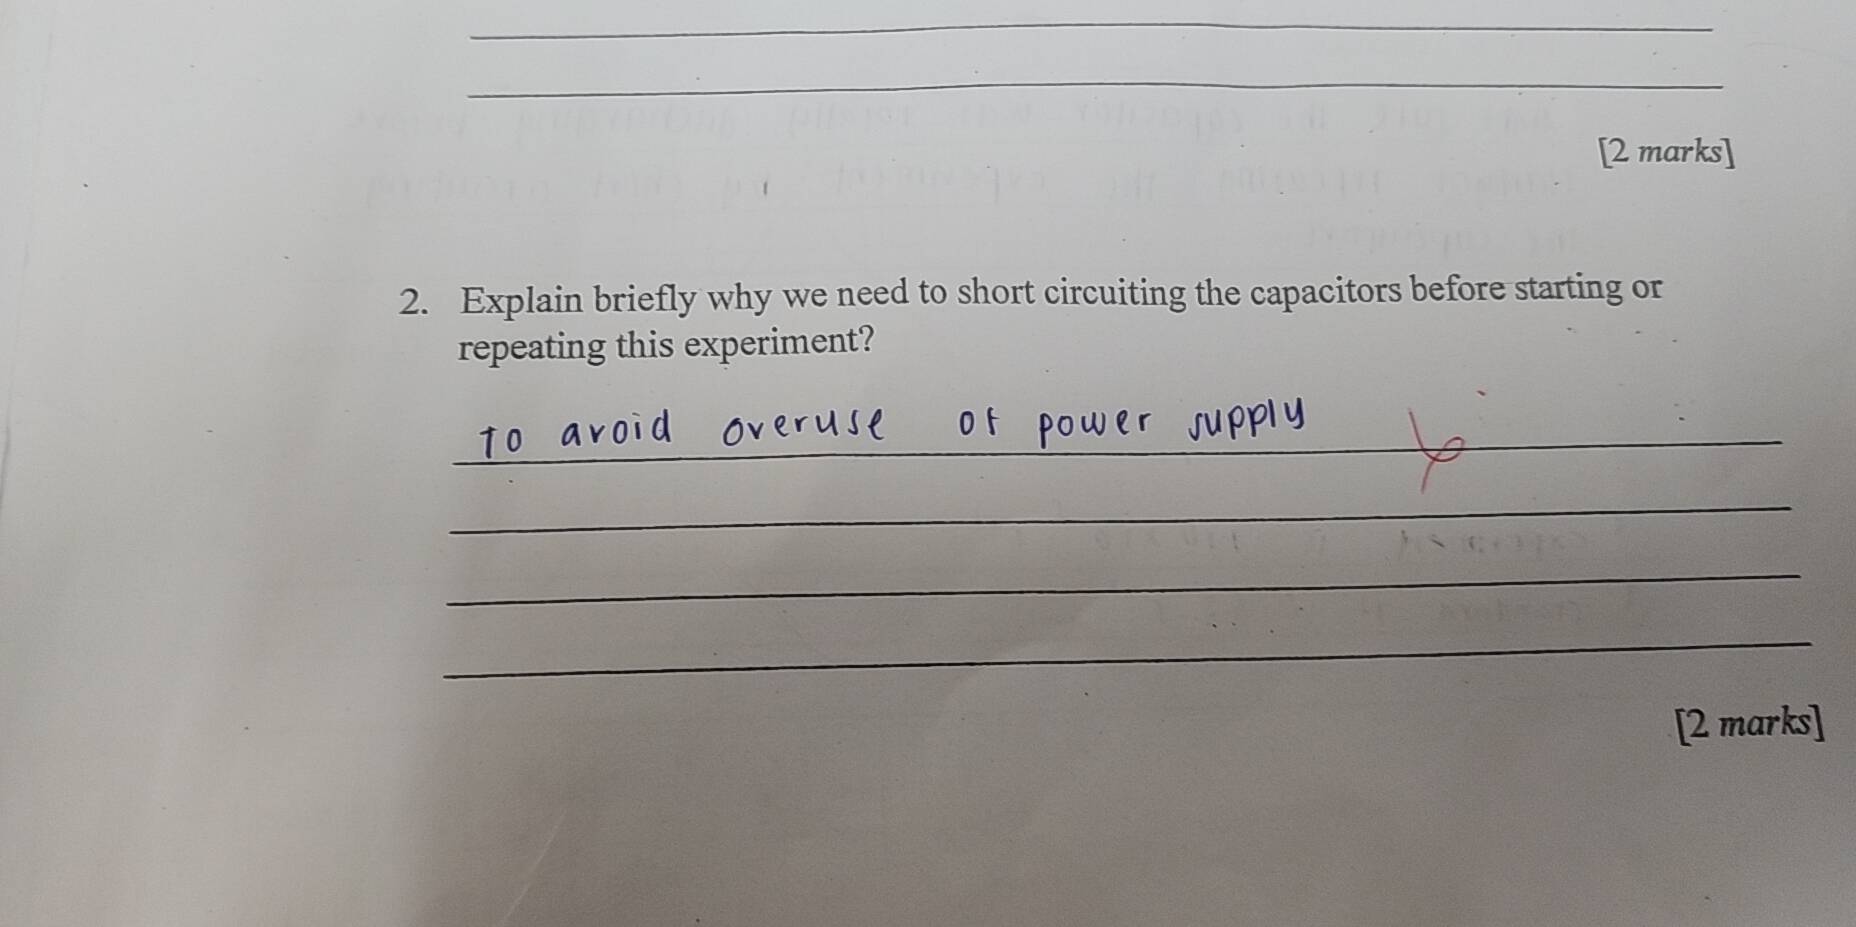 [2 marks]
2. Explain briefly why we need to short circuiting the capacitors before starting or
repeating this experiment?
To avoid overuse of power supply
[2 marks]